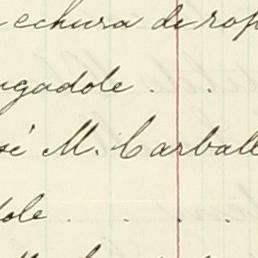 echura de rop
ugadole . .
sé M. Carball
dole . . . .